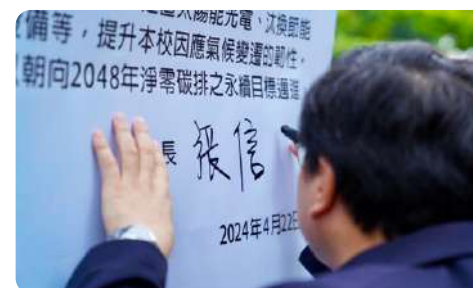 太陽能光電、汰換節能
設備等，提升本校因應氣候變遷的韌性，
朝向2048年淨零碳排之永續目標邁進
長 張信
2024年4月22日